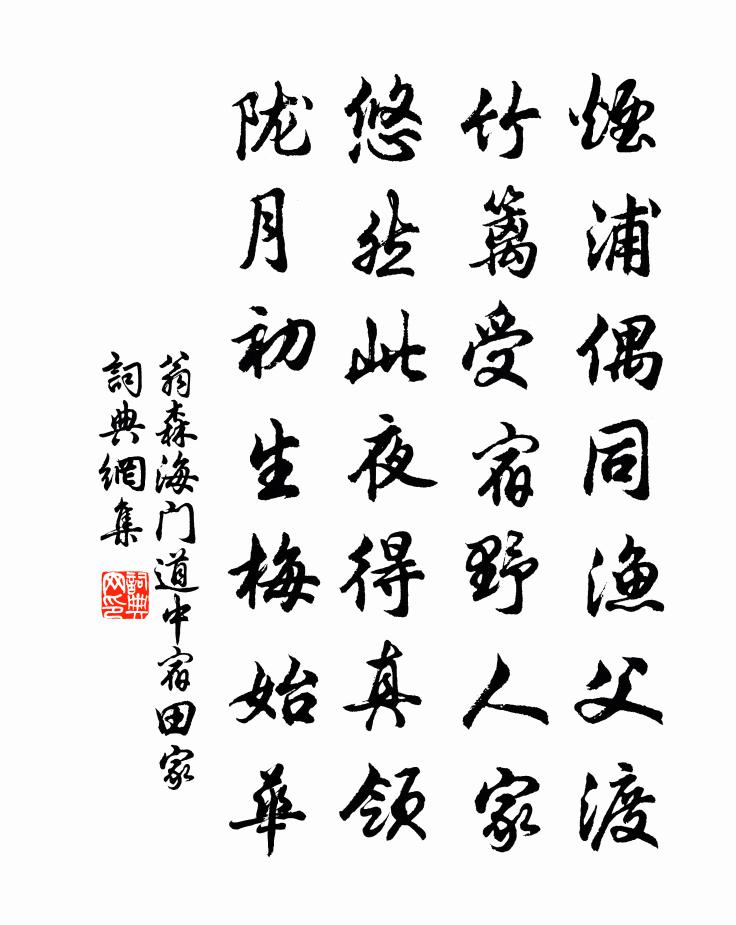 煙浦偶同漁父渡
竹籬受宿野人家
悠然此夜得真領
陇月初生梅始華
翁森海门道中宿田家
詞典網集
詞典网印